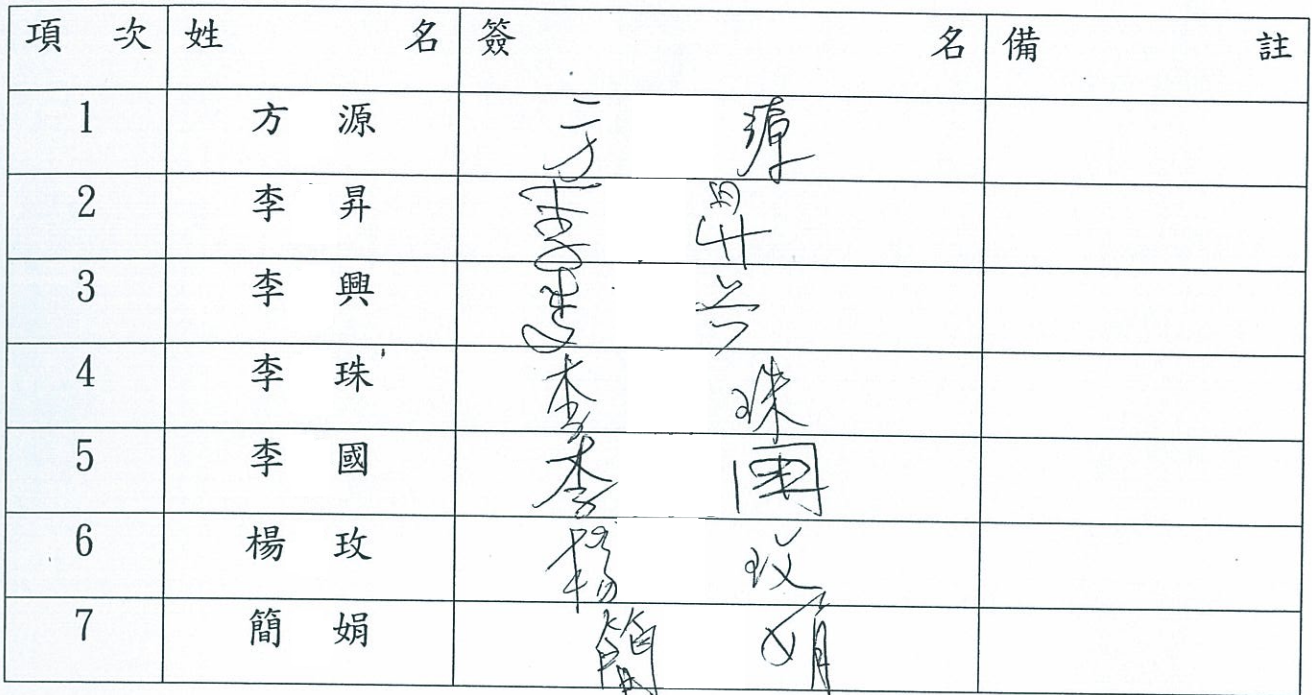 項次 姓名 簽名 備註
1 方源 方源
2 李昇 李昇
3 李興 李兴
4 李珠 李珠
5 李國 李國
6 楊玫 楊玫
7 簡娟 簡娟